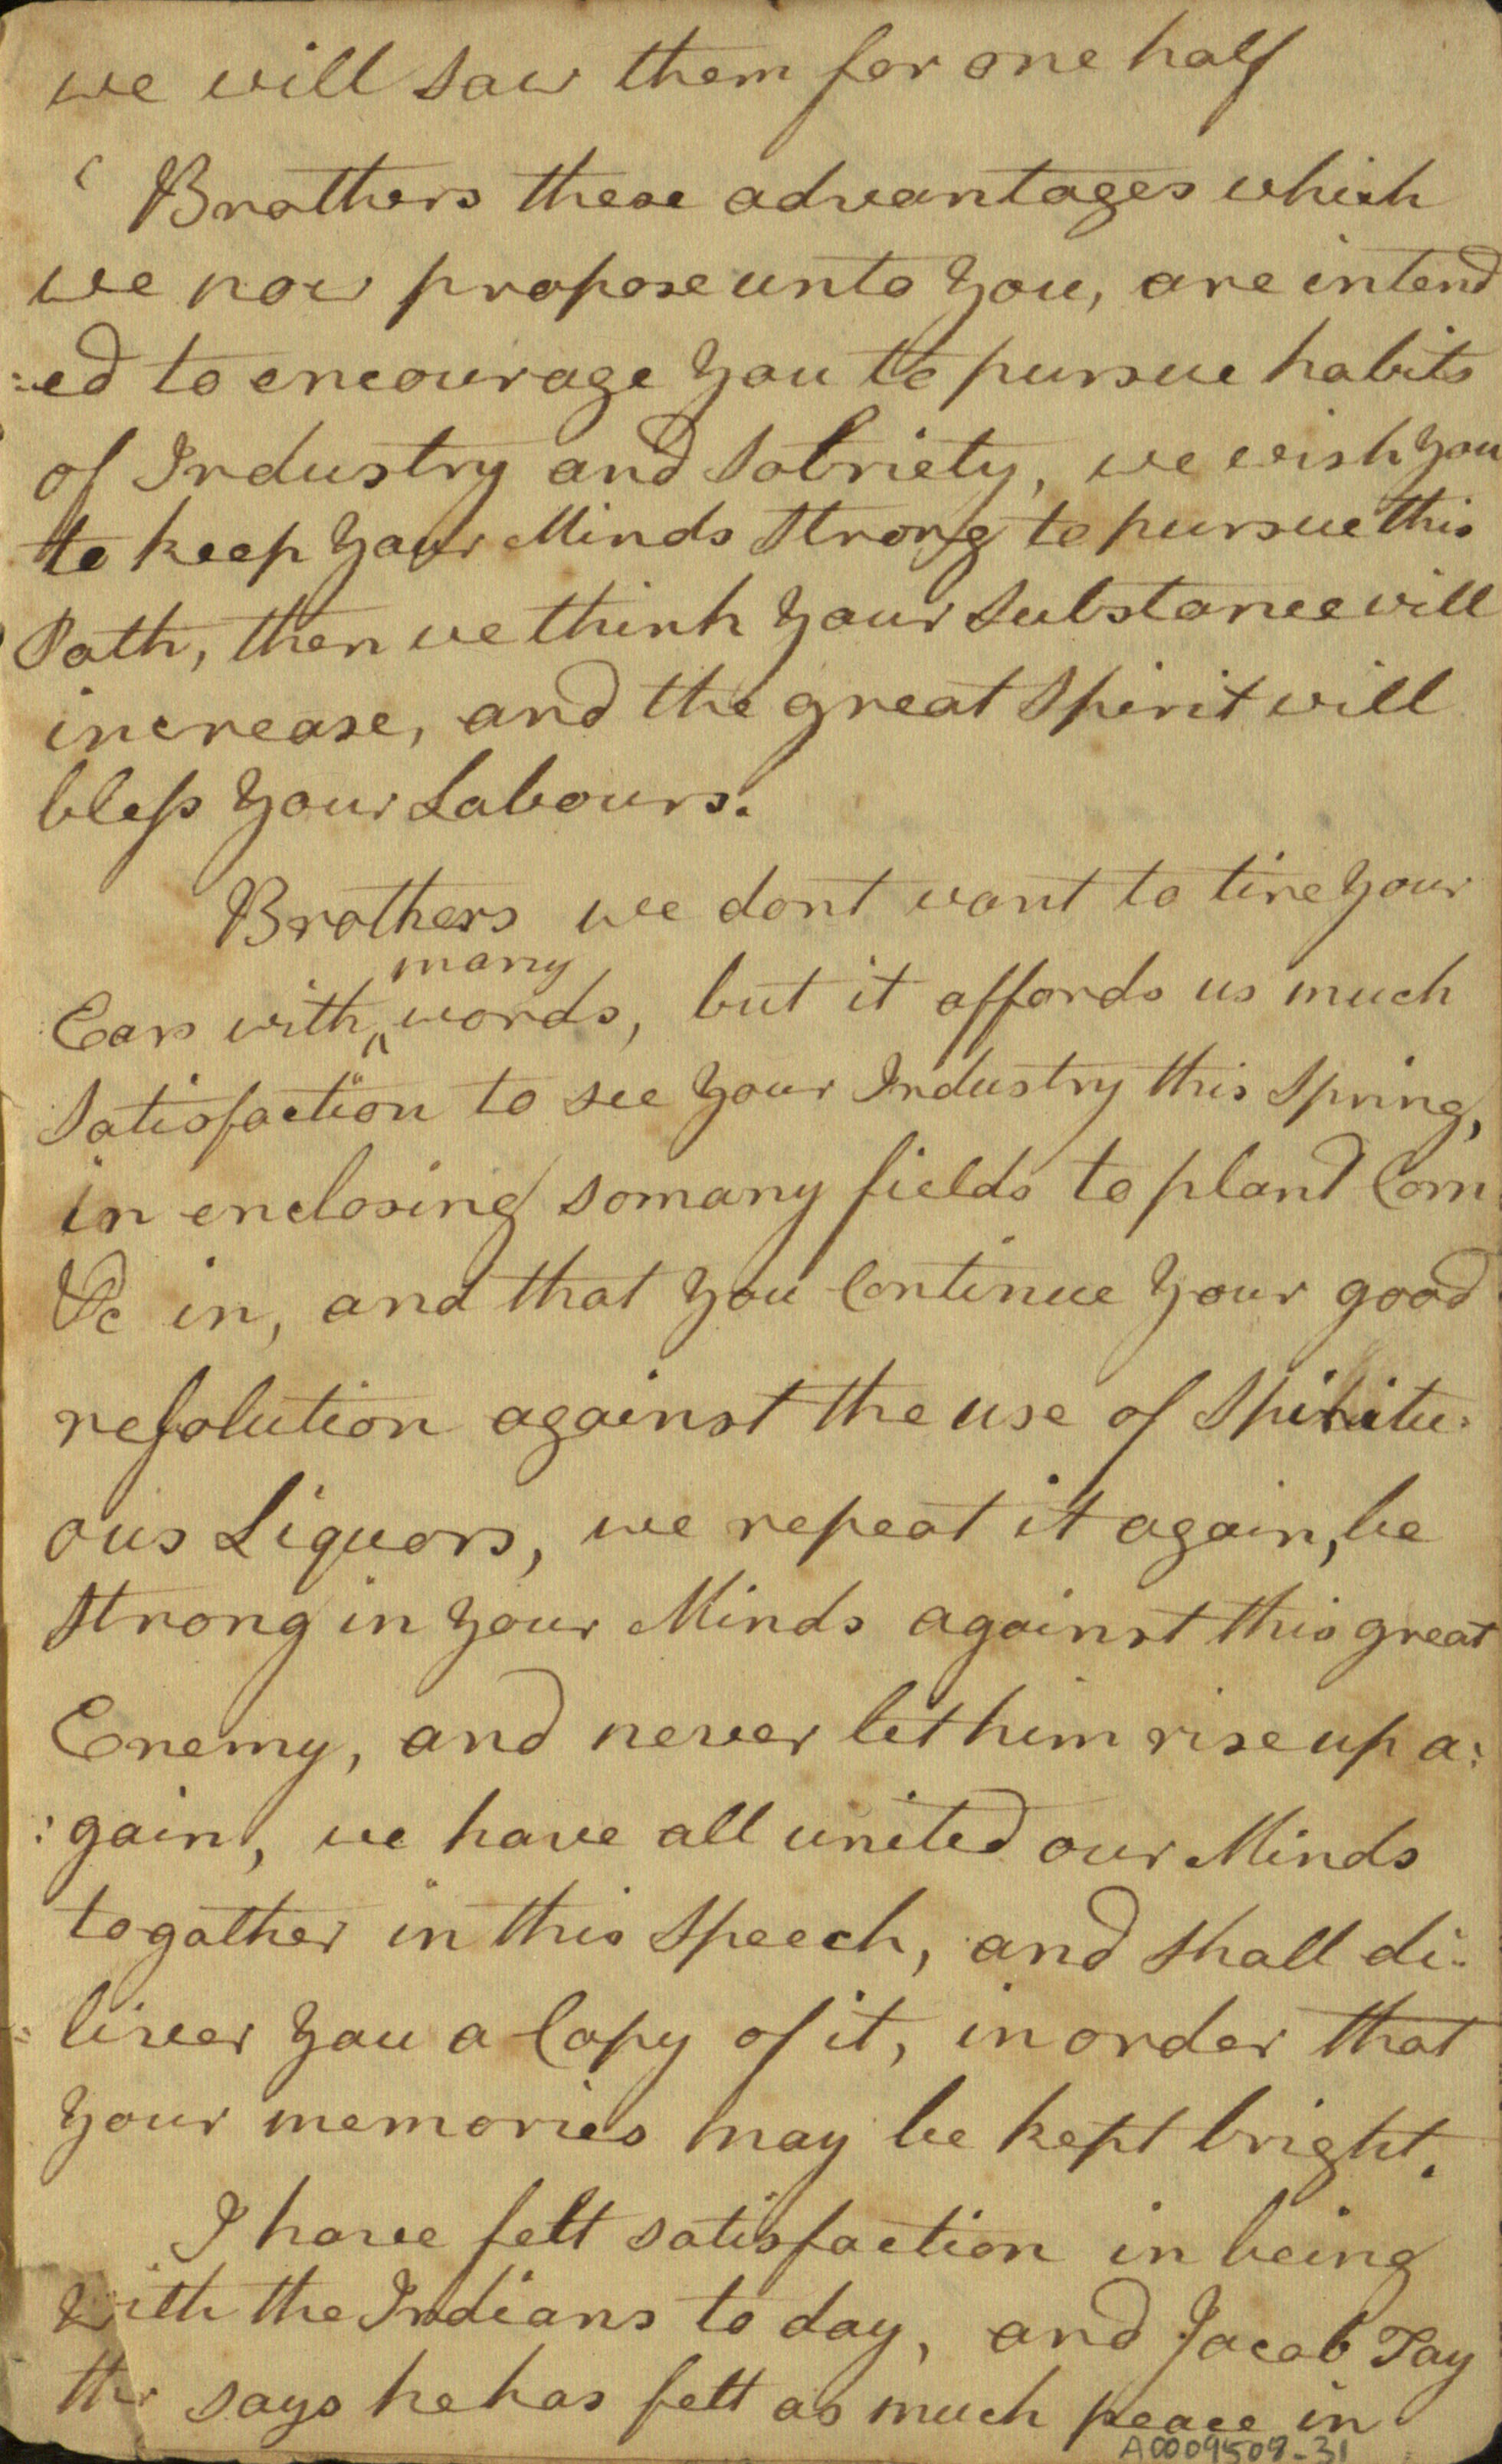 we will saw them for one half
‘ Brothers these advantages which
we now propose unto you, are intend
:ed to encourage you to pursue habits
of Industry and Sobriety, we wish you
to keep your Minds Strong to pursue this
Path, then we think your Substance will
increase, and the great Spirit will
bleſs your Labours.
Brothers we dont want to tire your
many
Ears with ‸ words, but it affords us much
Satisfaction to see your Industry this Spring,
in enclosing somany fields to plant Corn
&c in, and that you Continue your good
reſolution against the use of Spiritu:
ous Liquors, we repeat it again, be
Strong in your Minds against this great
Enemy, and never let him rise up a:
:gain, we have all united our Minds
togather in this Speech, and Shall di:
:liver you a Copy of it, in order that
your memories may be kept bright.
I have felt satisfaction in being
with the Indians to day, and Jacob Tay
says he has felt as much peace in
A0009509-31